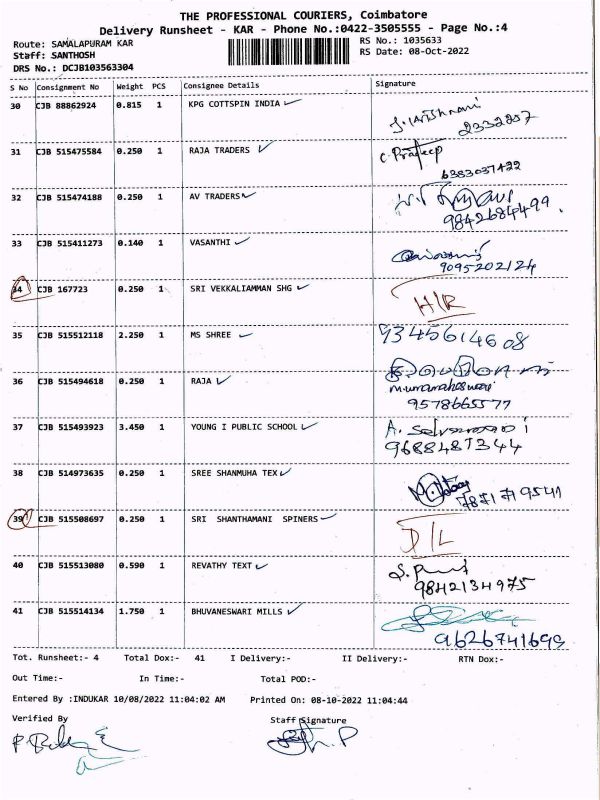 THE PROFESSIONAL COURIERS, Coimbatore
Delivery Runsheet - KAR - Phone No.:0422-3505555 - Page No.:4
Route: SAMALAPURAM KAR RS No.: 1035633
Staff: SANTHOSH RS Date: 08-Oct-2022
DRS No.: DCJB103563304
S No Consignment No Weight PCS Consignee Details Signature
30 CJB 88862924 0.815 1 KPG COTTSPIN INDIA
2332807
31 CJB 515475584 0.250 1 RAJA TRADERS C. Pradeep
6383037422
32 CJB 515474188 0.250 1 AV TRADERS
9842684499.
33 CJB 515411273 0.140 1 VASANTHI
9095202124
34 CJB 167723 0.250 1 SRI VEKKALIAMMAN SHG H/R
35 CJB 515512118 2.250 1 MS SHREE 9345614608
36 CJB 515494618 0.250 1 RAJA
M.umamaheswari
9578665577
37 CJB 515493923 3.450 1 YOUNG I PUBLIC SCHOOL A. Selvamani
9688487344
38 CJB 514973635 0.250 1 SREE SHANMUHA TEX
7871719541
39 CJB 515508697 0.250 1 SRI SHANTHAMANI SPINERS D/L
40 CJB 515513080 0.590 1 REVATHY TEXT
9842134975
41 CJB 515514134 1.750 1 BHUVANESWARI MILLS
9626741699
Tot. Runsheet:- 4 Total Dox:- 41 I Delivery:- II Delivery:- RTN Dox:-
Out Time:- In Time:- Total POD:-
Entered By :INDUKAR 10/08/2022 11:04:02 AM Printed On: 08-10-2022 11:04:44
Verified By Staff Signature